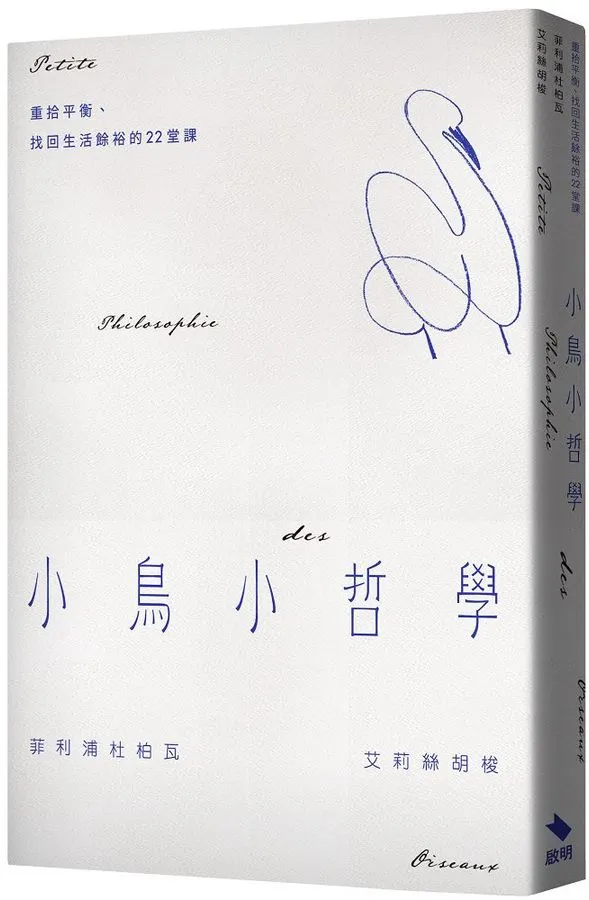 Petite
重拾平衡、
找回生活餘裕的22堂課
Philosophie
des
小鳥小哲學
菲利浦杜柏瓦
艾莉絲胡梭
Oiseaux
重拾平衡、找回生活餘裕的22堂課
菲利浦杜柏瓦
艾莉絲胡梭
Petite
小鳥小哲學
Philosophie
des
Oiseaux
啟明